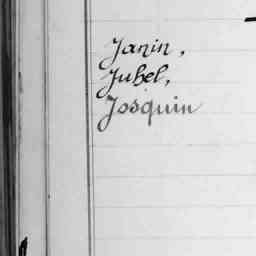 Janin,
Jubel,
Josquin